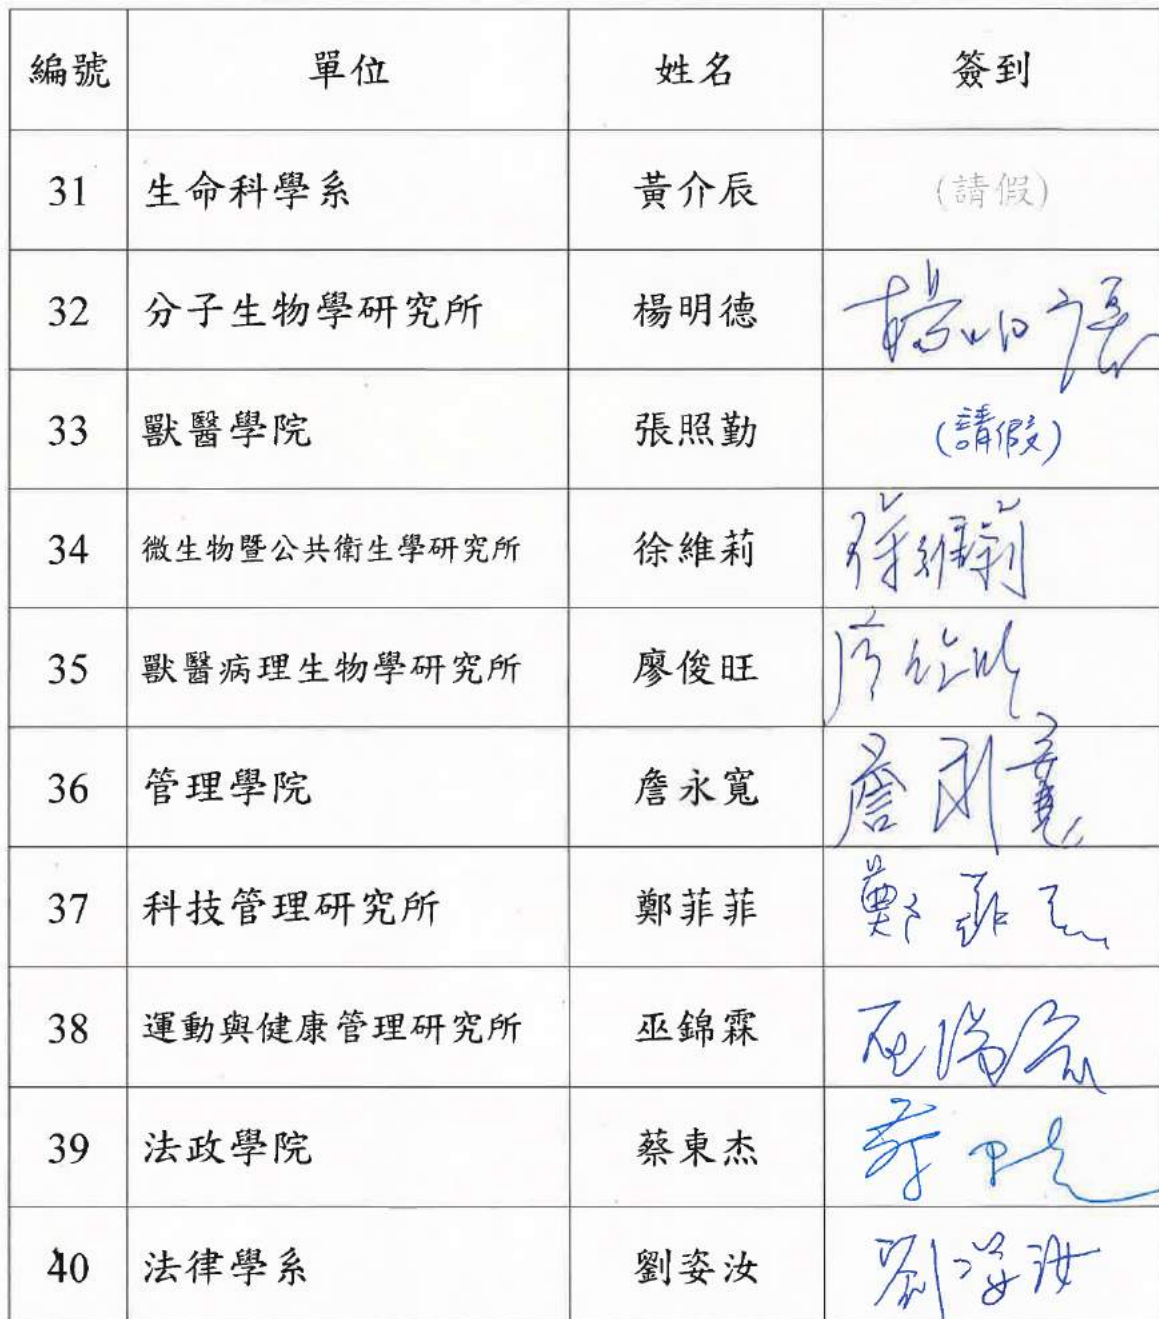 編號 單位 姓名 簽到
31 生命科學系 黃介辰 (請假)
32 分子生物學研究所 楊明德 楊明德
33 獸醫學院 張照勤 (請假)
34 微生物暨公共衛生學研究所 徐維莉 徐維莉
35 獸醫病理生物學研究所 廖俊旺
36 管理學院 詹永寬 詹永寬
37 科技管理研究所 鄭菲菲 鄭菲菲
38 運動與健康管理研究所 巫錦霖
39 法政學院 蔡東杰
40 法律學系 劉姿汝 劉姿汝